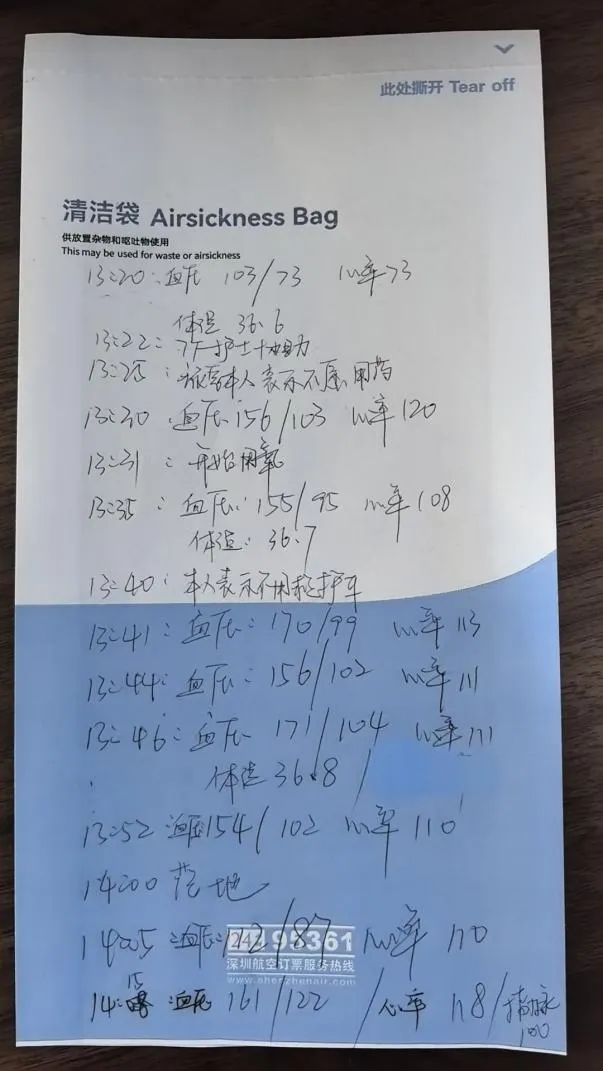 此处撕开 Tear off
清洁袋 Airsickness Bag
供放置杂物和呕吐物使用
This may be used for waste or airsickness
13:20:血压 103/73 心率73
体温 36.6
13:22: 护士协助
13:25:旅客本人表示不愿用药
13:30 血压156/103 心率120
13:31:开始用氧
13:35:血压:155/95 心率108
体温:36.7
13:40:本人表示不用救护车
13:41:血压:170/99 心率113
13:44:血压:156/102 心率111
13:46:血压 171/104 心率111
体温36.8/
13:52 血压154/102 心率110
14:00 落地
14:05 血压: /87 心率110
95361
深圳航空订票服务热线
www.shenzhenair.com
14:15 血压 161/122 /心率 118/ 100